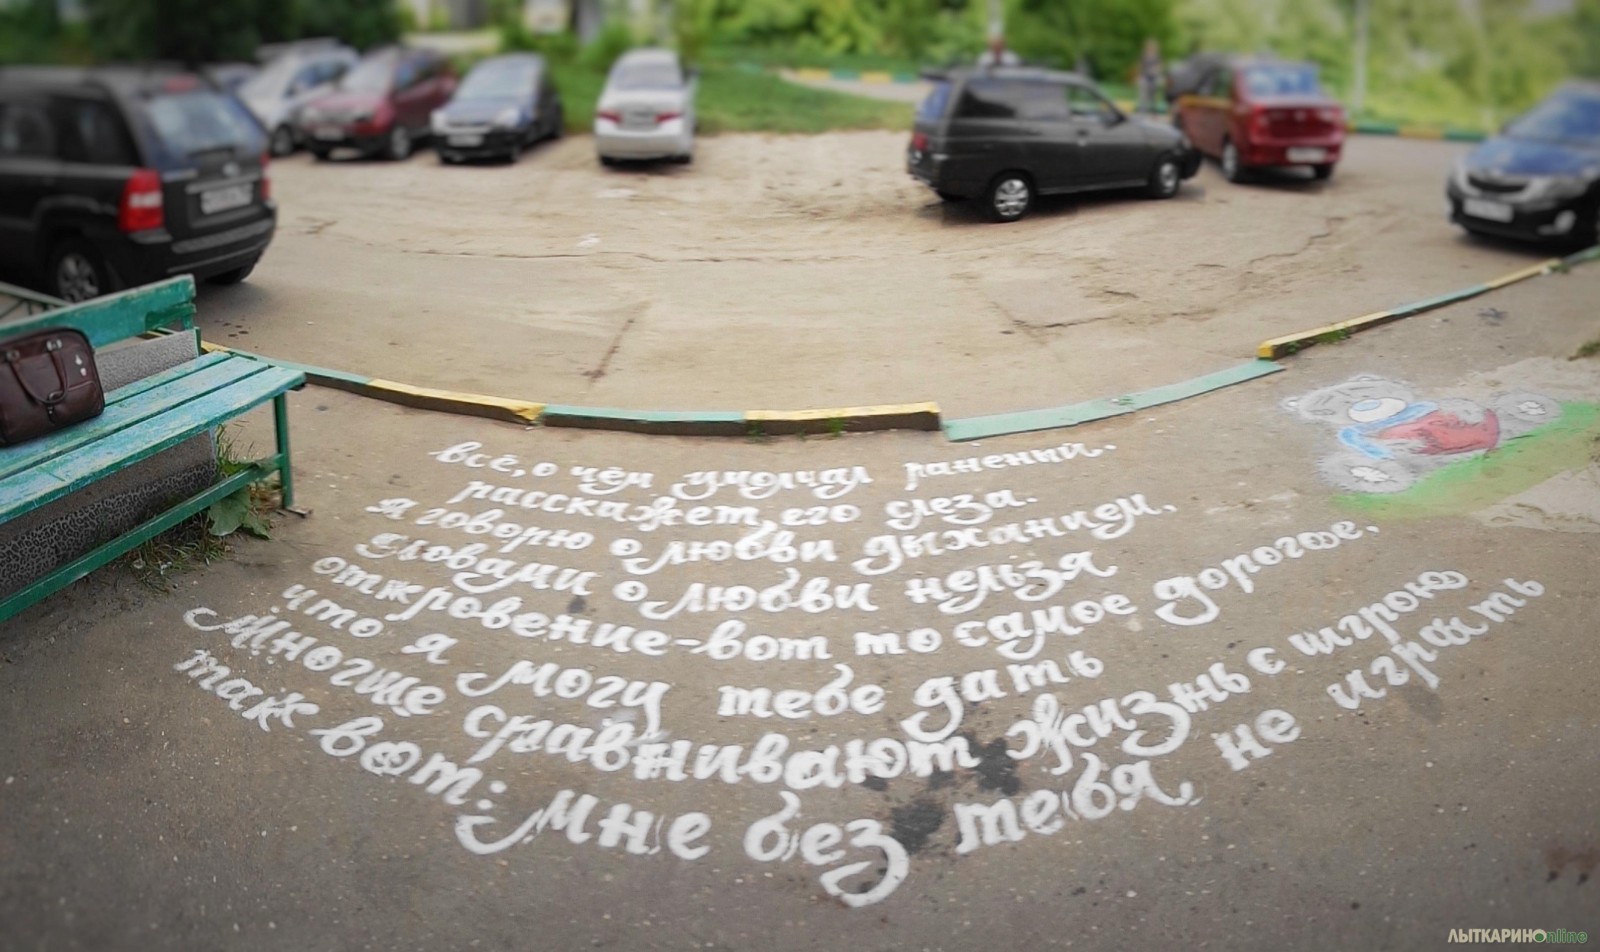 всё, о чём умолчал раненый.
расскажет его слеза.
я говорю о любви дыханием,
словами о любви нельзя
откровение-вот то самое дорогое,
что я могу тебе дать
Многие сравнивают жизнь с игрою
так вот: мне без тебя не играть
ЛЫТКАРИНОonline